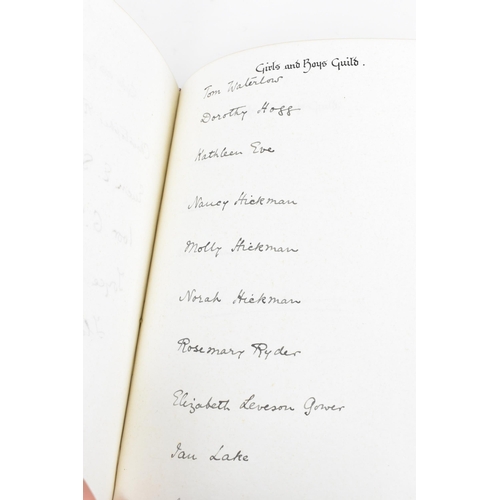 Girls and Boys Guild.
Tom Waterlow
Dorothy Hogg
Kathleen Eve
Nancy Hickman
Molly Hickman
Norah Hickman
Rosemary Ryder
Elizabeth Leveson Gower
Ian Lake